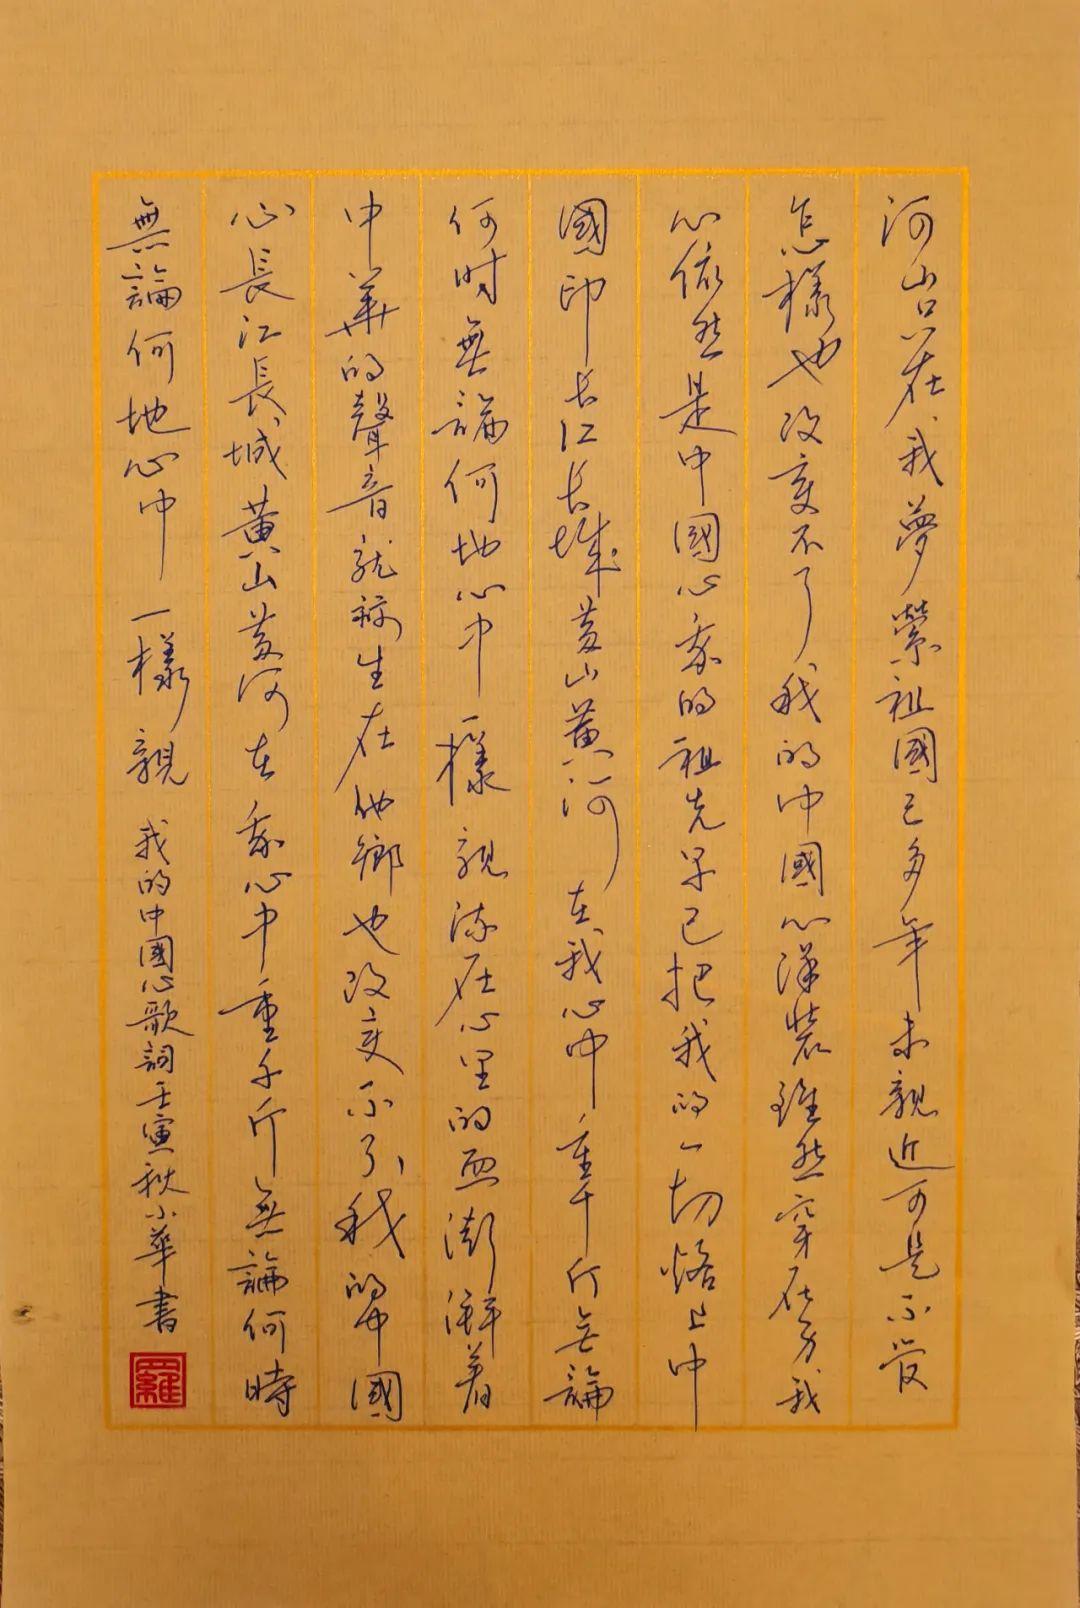 河山只在我夢縈祖國已多年未親近可是不管
怎樣也改變不了我的中國心洋裝雖然穿在身我
心依然是中國心我的祖先早已把我的一切烙上中
國印长江长城黄山黄河在我心中重千斤無論
何时無論何地心中一樣親流在心里的血澎湃着
中華的聲音就算生在他鄉也改變不了我的中國
心長江長城黄山黄河在我心中重千斤無論何時
無論何地心中一樣親 我的中國心歌詞壬寅秋小華書
羅